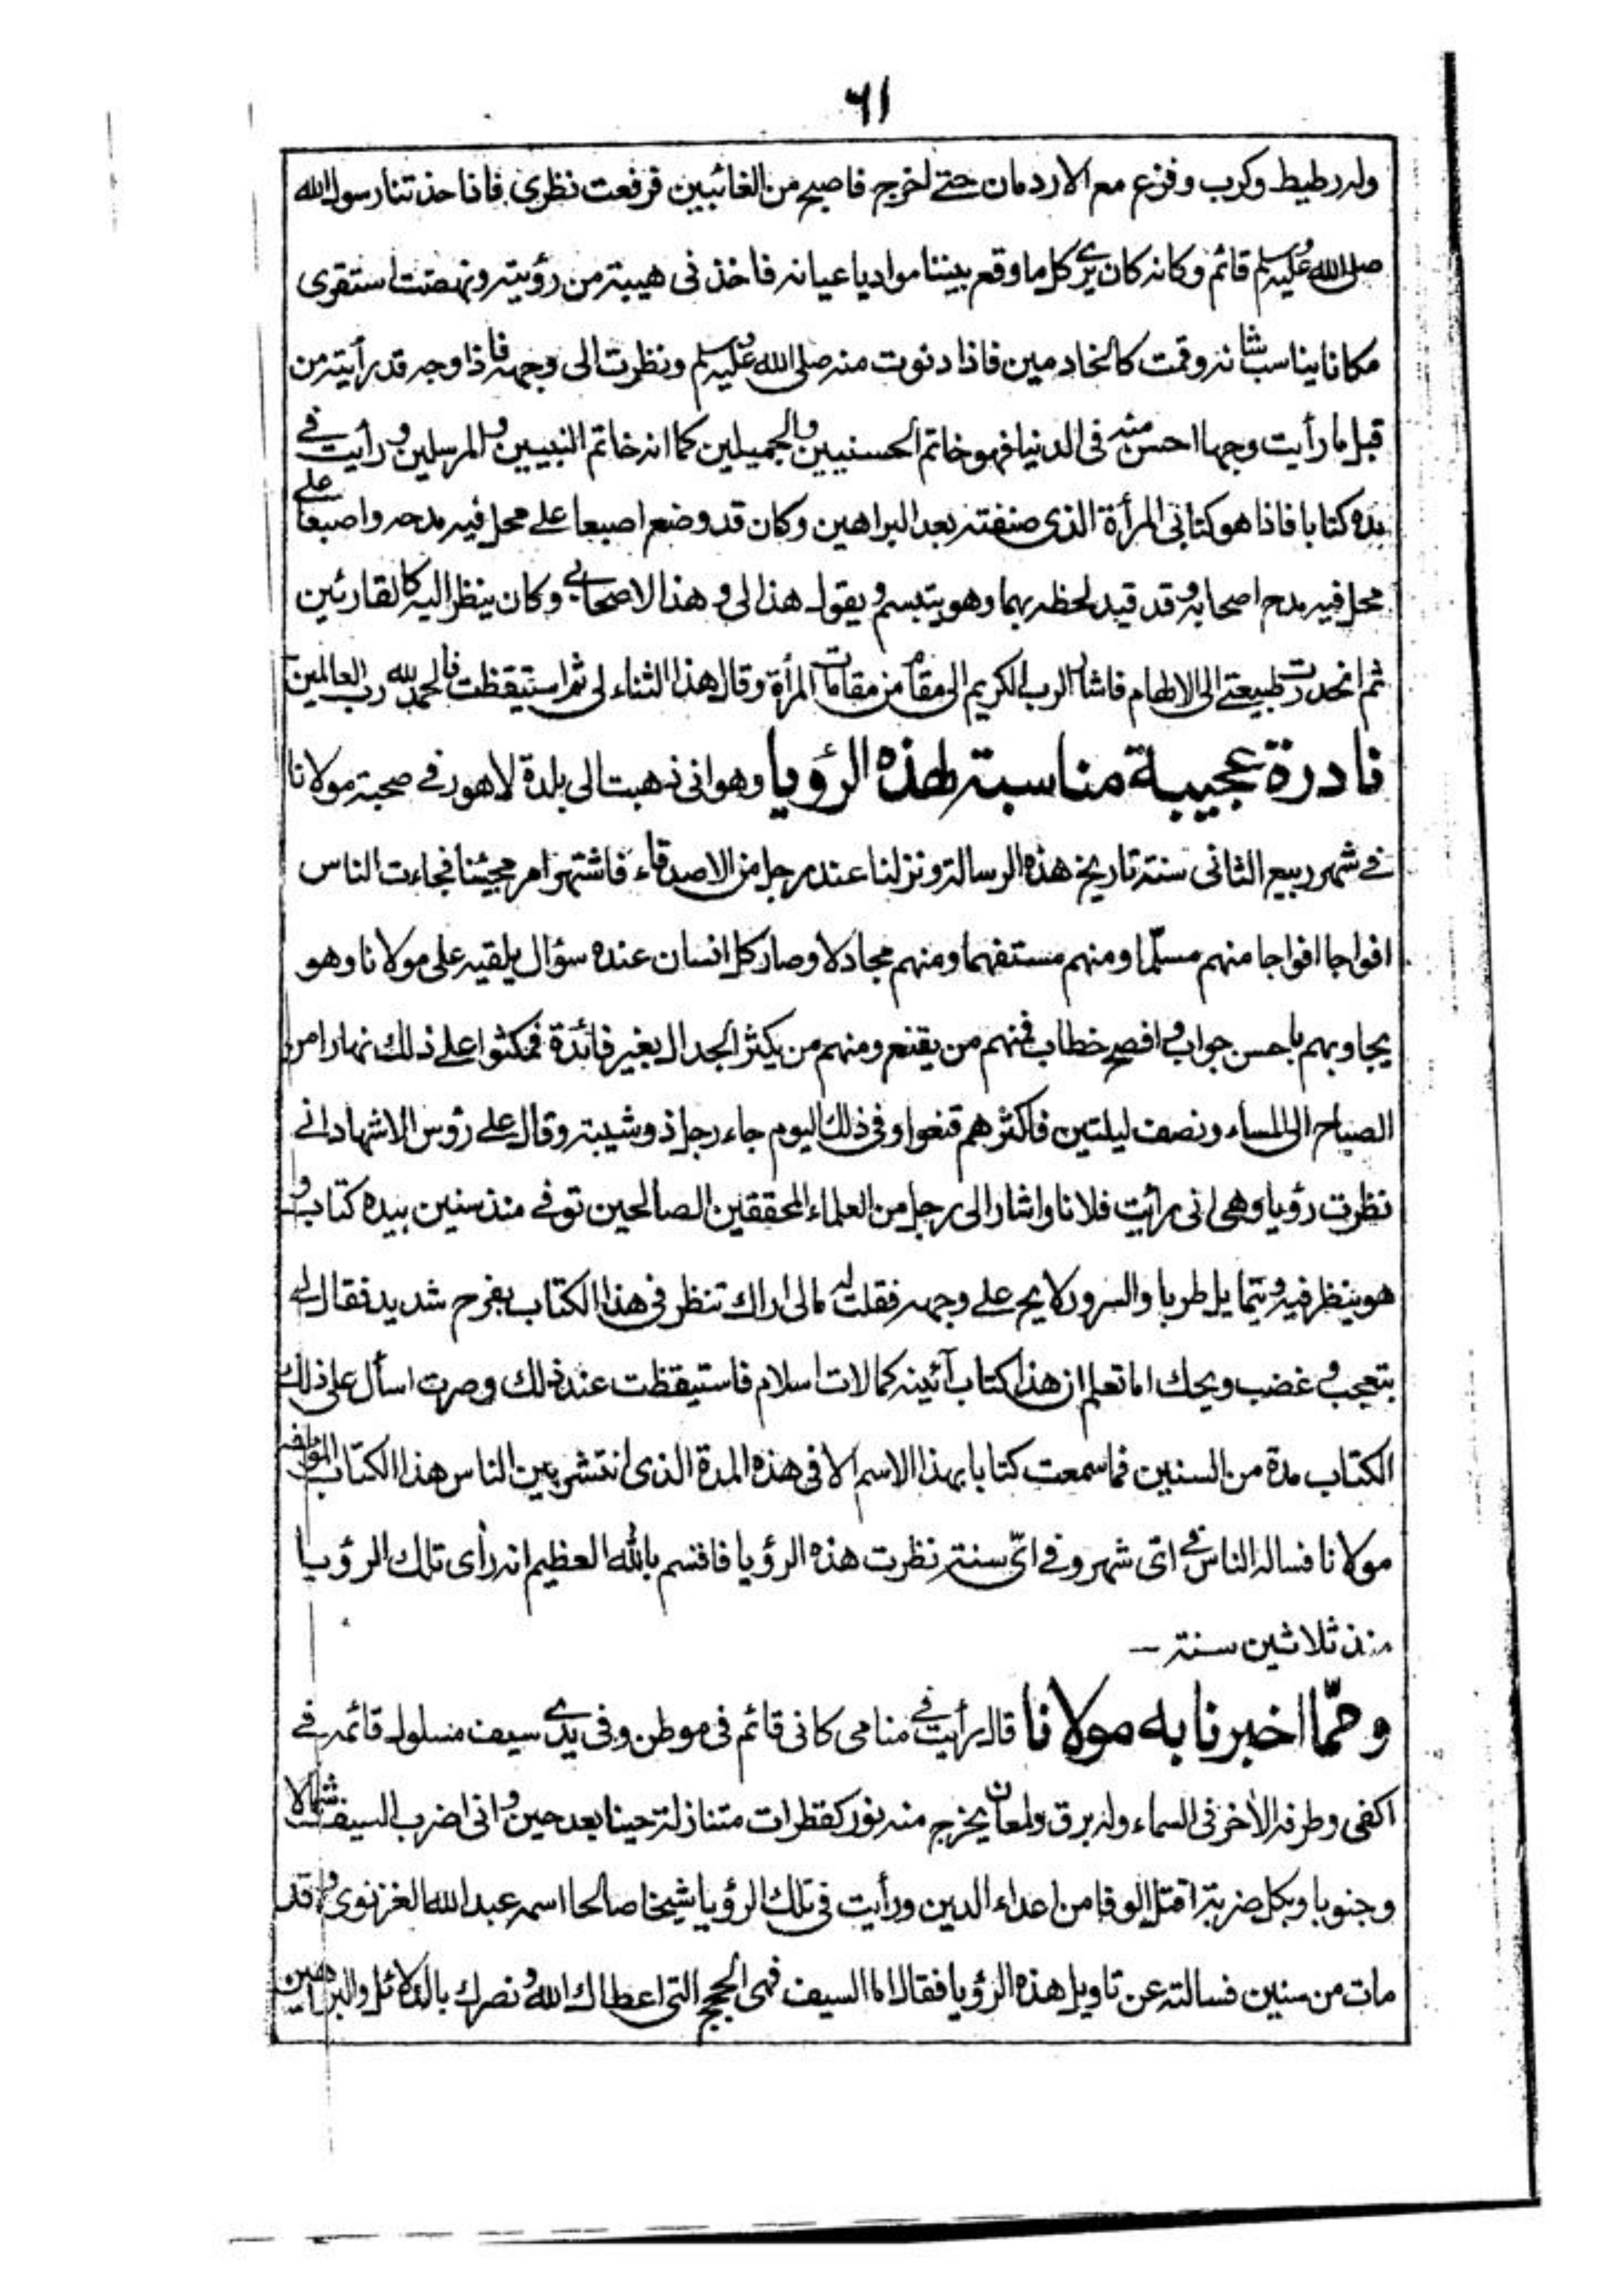 ٦١
وله رطيط وكرب وفزع مع الاردمان حتى اخرج فاصبح من الغائبين فرفعت نظري فاذا حذتنا رسول الله
صلى الله عليه وسلم قائم وكانه كان يرى كل ما وقع بيننا مواديا عيانه فاخذنى هيبة من رؤيته ونهضت استقرى
مكانا يناسب شانه وقمت كالخادمين فاذا دنوت منه صلى الله عليه وسلم ونظرت الى وجهه فاذا وجه قد رأيته من
قبل ما رأيت وجها احسن منه فى الدنيا فهو خاتم الحسنيين والجميلين كما انه خاتم النبيين والمرسلين ورأيت فى
يده كتابا فاذا هو كتابى المرأة الذى صنفته بعد البراهين وكان قد وضع اصبعا على محل فيه مدحه واصبعا على
محل فيه مدح اصحابه وقد قيد لحظه بهما وهو يتبسم ويقول هذا لى وهذا لاصحابى وكان ينظر اليه كالقارئين
ثم انحدرت طبيعتى الى الالهام فاشار الرب الكريم الى مقام من مقامات المرأة وقال هذا الثناء لى ثم استيقظت فالحمد لله رب العالمين
نادرة عجيبة مناسبة لهذه الرؤيا وهو انى ذهبت الى بلدة لاهور فى صحبة مولانا
فى شهر ربيع الثانى سنة تاريخ هذه الرسالة ونزلنا عند رجل من الاصدقاء فاشتهر امر مجيئنا فجاءت الناس
افواجا افواجا منهم مسلّما ومنهم مستفهما ومنهم مجادلا وصار كل انسان عنده سؤال يلقيه على مولانا وهو
يجاوبهم باحسن جواب وافصح خطاب فمنهم من يقنع ومنهم من يكثر الجدال بغير فائدة فمكثوا على ذلك نهارا من
الصباح الى المساء ونصف ليلتين فاكثرهم قنعوا وفى ذلك اليوم جاء رجل ذو شيبة وقال على رؤس الاشهاد انى
نظرت رؤيا وهى انى رأيت فلانا واشار الى رجل من العلماء المحققين الصالحين توفى منذ سنين بيده كتاب و
هو ينظر فيه ويتمايل طربا والسرور لايح على وجهه فقلت له مالى اراك تنظر فى هذا الكتاب بفرح شديد فقال لى
بتعجب وغضب ويحك اما تعلم ان هذا كتاب آئينه كمالات اسلام فاستيقظت عند ذلك وصرت اسأل على ذلك
الكتاب مدة من السنين فما سمعت كتابا بهذا الاسم الا فى هذه المدة الذى انتشر بين الناس هذا الكتاب المؤلفه
مولانا فساله الناس فى اىّ شهر وفى اىّ سنة نظرت هذه الرؤيا فاقسم بالله العظيم انه رأى تلك الرؤيا
منذ ثلاثين سنة –
وممّا اخبرنا به مولانا قال رأيت فى منامى كانى قائم فى موطن وفى يدى سيف مسلول قائمه فى
اكفى وطرفه الأخر فى السماء وله برق ولمعان يخرج منه نور كقطرات متنازلة حينا بعد حين وانى اضرب السيف شمالا
وجنوبا وبكل ضربة اقتل الوفا من اعداء الدين ورأيت فى تلك الرؤيا شيخا صالحا اسمه عبد الله الغزنوى وقد
مات من سنين فسالته عن تاويل هذه الرؤيا فقال اما السيف فهى الحجج التى اعطاك الله ونصرك بالدلائل والبراهين